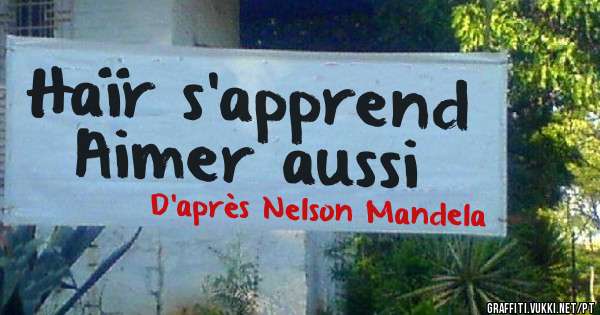 Haïr s'apprend
Aimer aussi
D'après Nelson Mandela
GRAFFITI.VUKKI.NET/PT